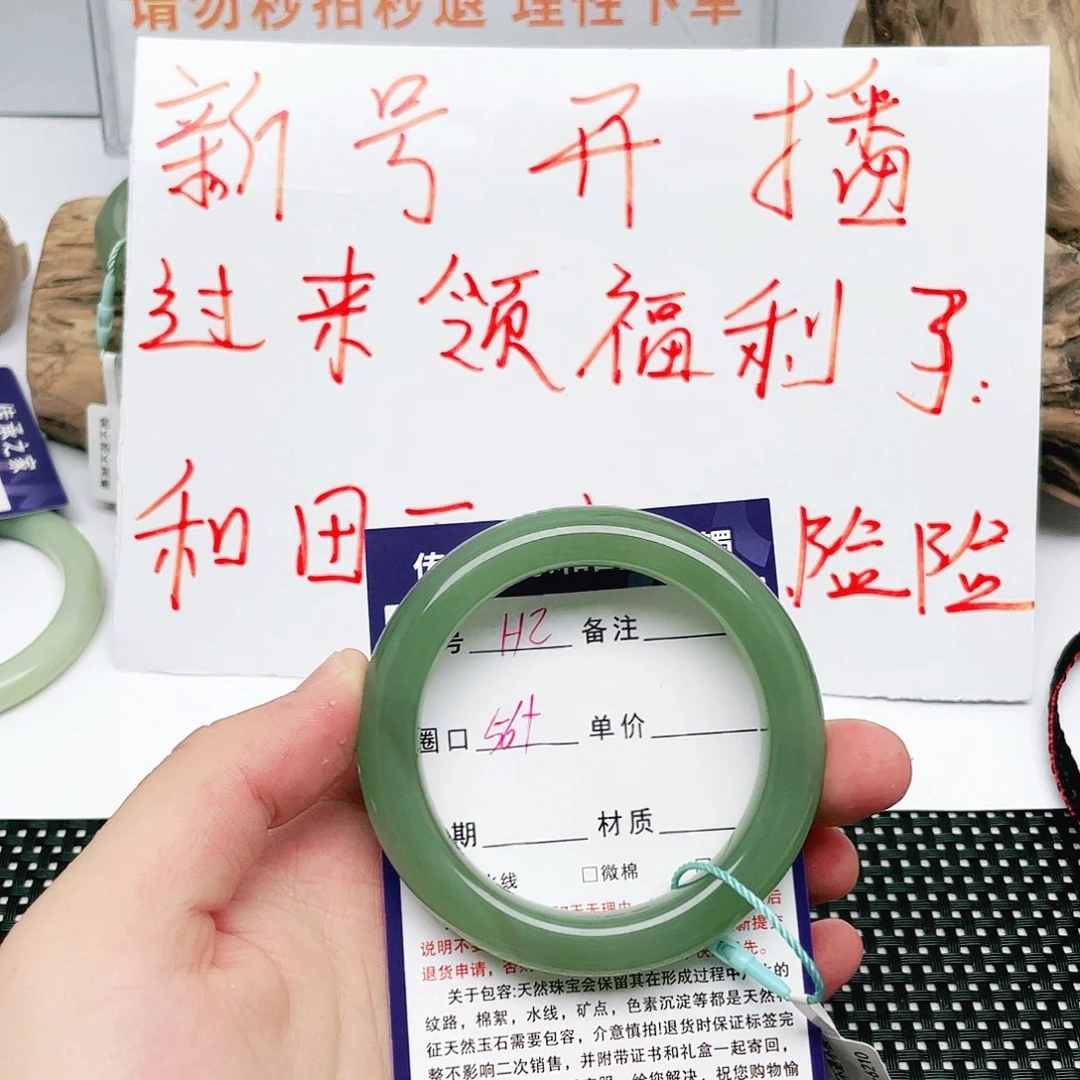 请勿秒拍秒退 理性下单
新号开播
过来领福利了:
和田一
险险
传承之家
号 H2 备注
圈口 56+ 单价
期 材质
水线 □微棉
说明不
退货申请,
关于包容:天然珠宝会保留其在形成过程中 的
纹路,棉絮,水线,矿点,色素沉淀等都是天然
征天然玉石需要包容,介意慎拍!退货时保证标签完
整不影响二次销售,并附带证书和礼盒一起寄回,
给您解决,祝您购物愉